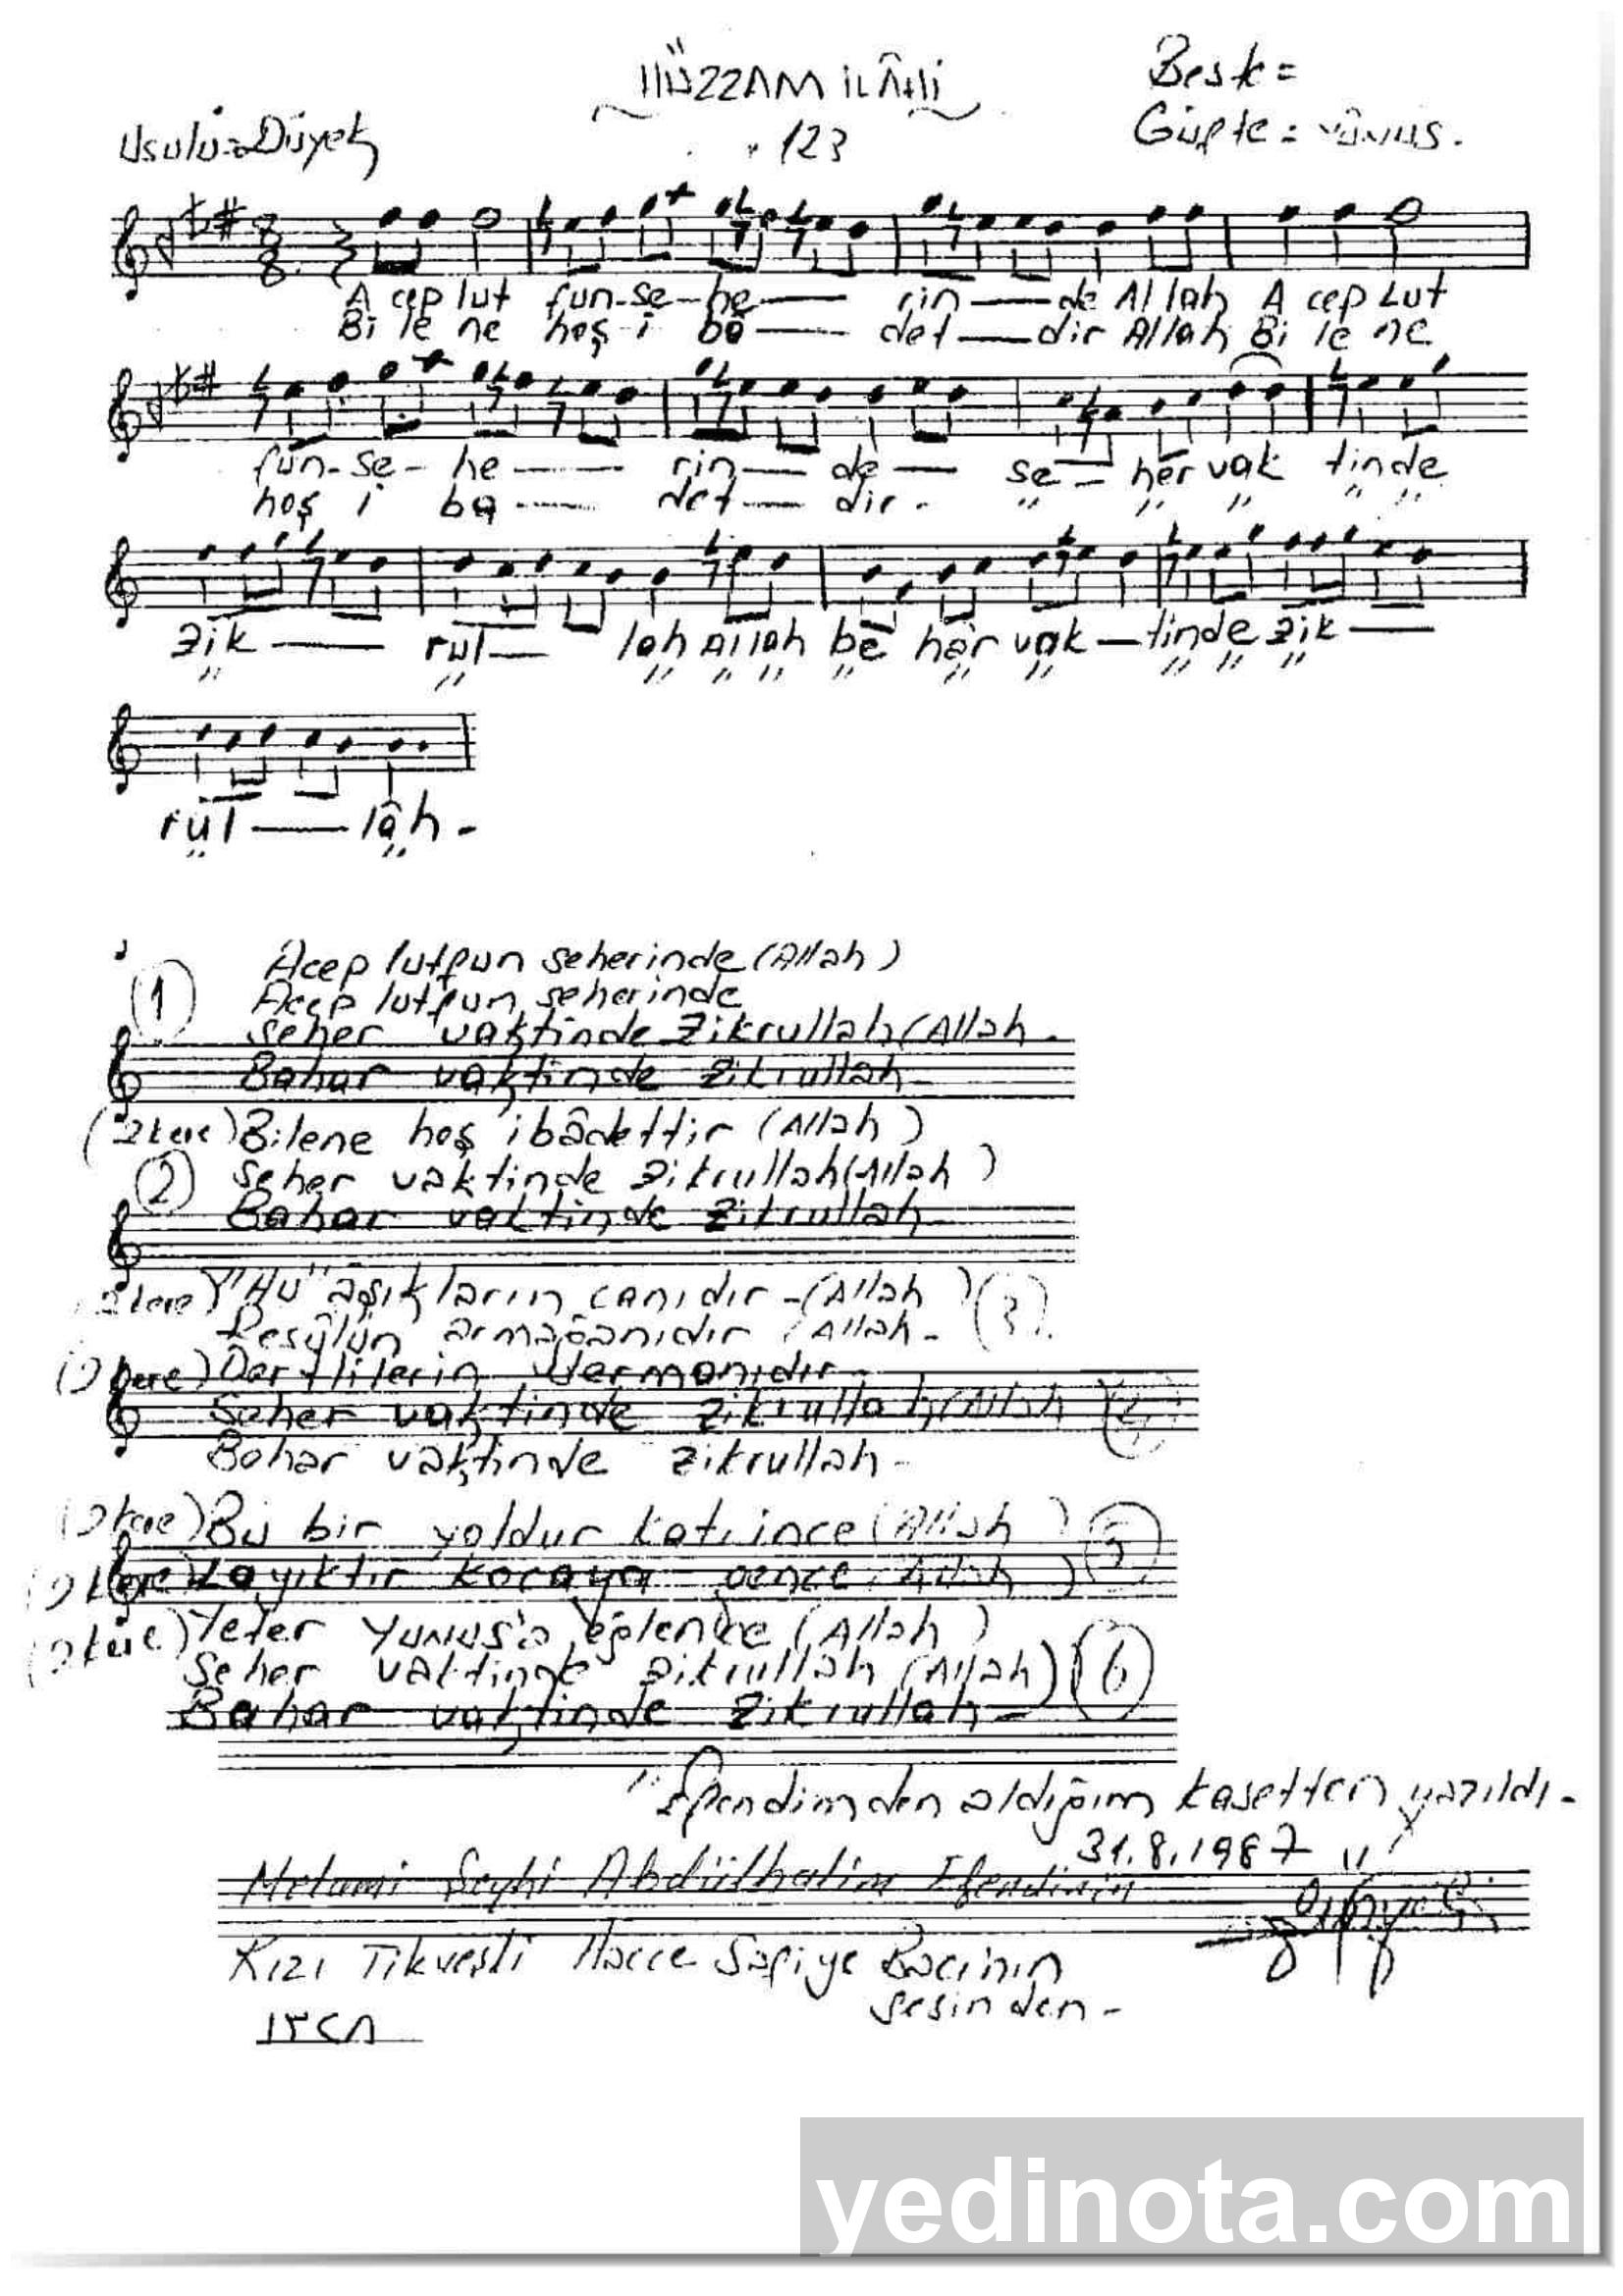 HÜZZAM İLÂHİ
Beste =
Usulü = Düyek
123
Güfte = Yûnus.
8
8
A cep lut fun-se-he— rin—de Allah A cep Lut
Bi le ne hoş-i bâ— det—dir Allah Bi le ne
fun-se-he— rin—de— se—her vak tinde
hoş i ba— det—dir- " " " " "
zik— rul— lah Allah be hâr vak—tinde zik—
" " " " " " " " " " "
rül—lâh-
" "
1
Acep lutfun seherinde (Allah)
Acep lutfun seherinde
Seher vaktinde Zikrullah (Allah-
Bahar vaktinde Zikrullah-
(2 kere) Bilene hoş ibâdettir (Allah)
2
Seher vaktinde Zikrullah (Allah)
Bahar vaktinde Zikrullah
2 kere) "Hu" aşıkların canıdır-(Allah) (3)
Resûlün armağanıdır (Allah-
(2 kere) Dertlilerin dermanıdır-
Seher vaktinde Zikrullah (Allah
Bahar vaktinde Zikrullah-
(2 kere) Bu bir yoldur katı ince (Allah) 5
(2 kere) Layıktır kocaya gence (Allah)
(2 kere) Yeter Yunus'a eğlence (Allah)
Seher vaktinde zikrullah (Allah) 6
Bahar vaktinde Zikrullah-
"Efendimden aldığım kasetten yazıldı-
31.8.1987 "
Melami Şeyhi Abdülhalim Efendinin
Kızı Tikveşli Hacce Safiye Bacı'nın
sesinden-
yedinota.com